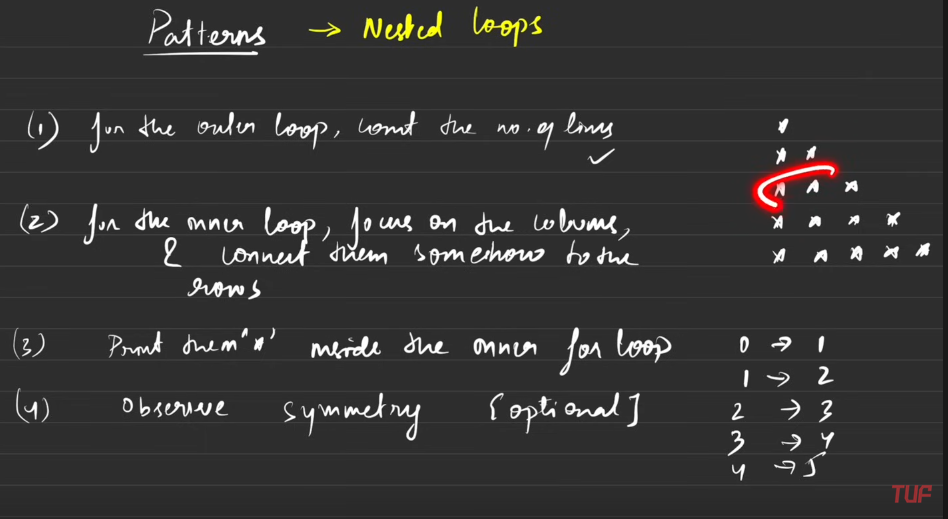 Patterns → Nested loops
(1) for the outer loop, count the no. of lines ✓
(2) for the inner loop, focus on the columns,
& connect them somehow to the
rows
(3) Print them '*' inside the inner for loop
(4) Observe symmetry [optional]
*
* *
* * *
* * * *
* * * * *
0 → 1
1 → 2
2 → 3
3 → 4
4 → 5
TUF